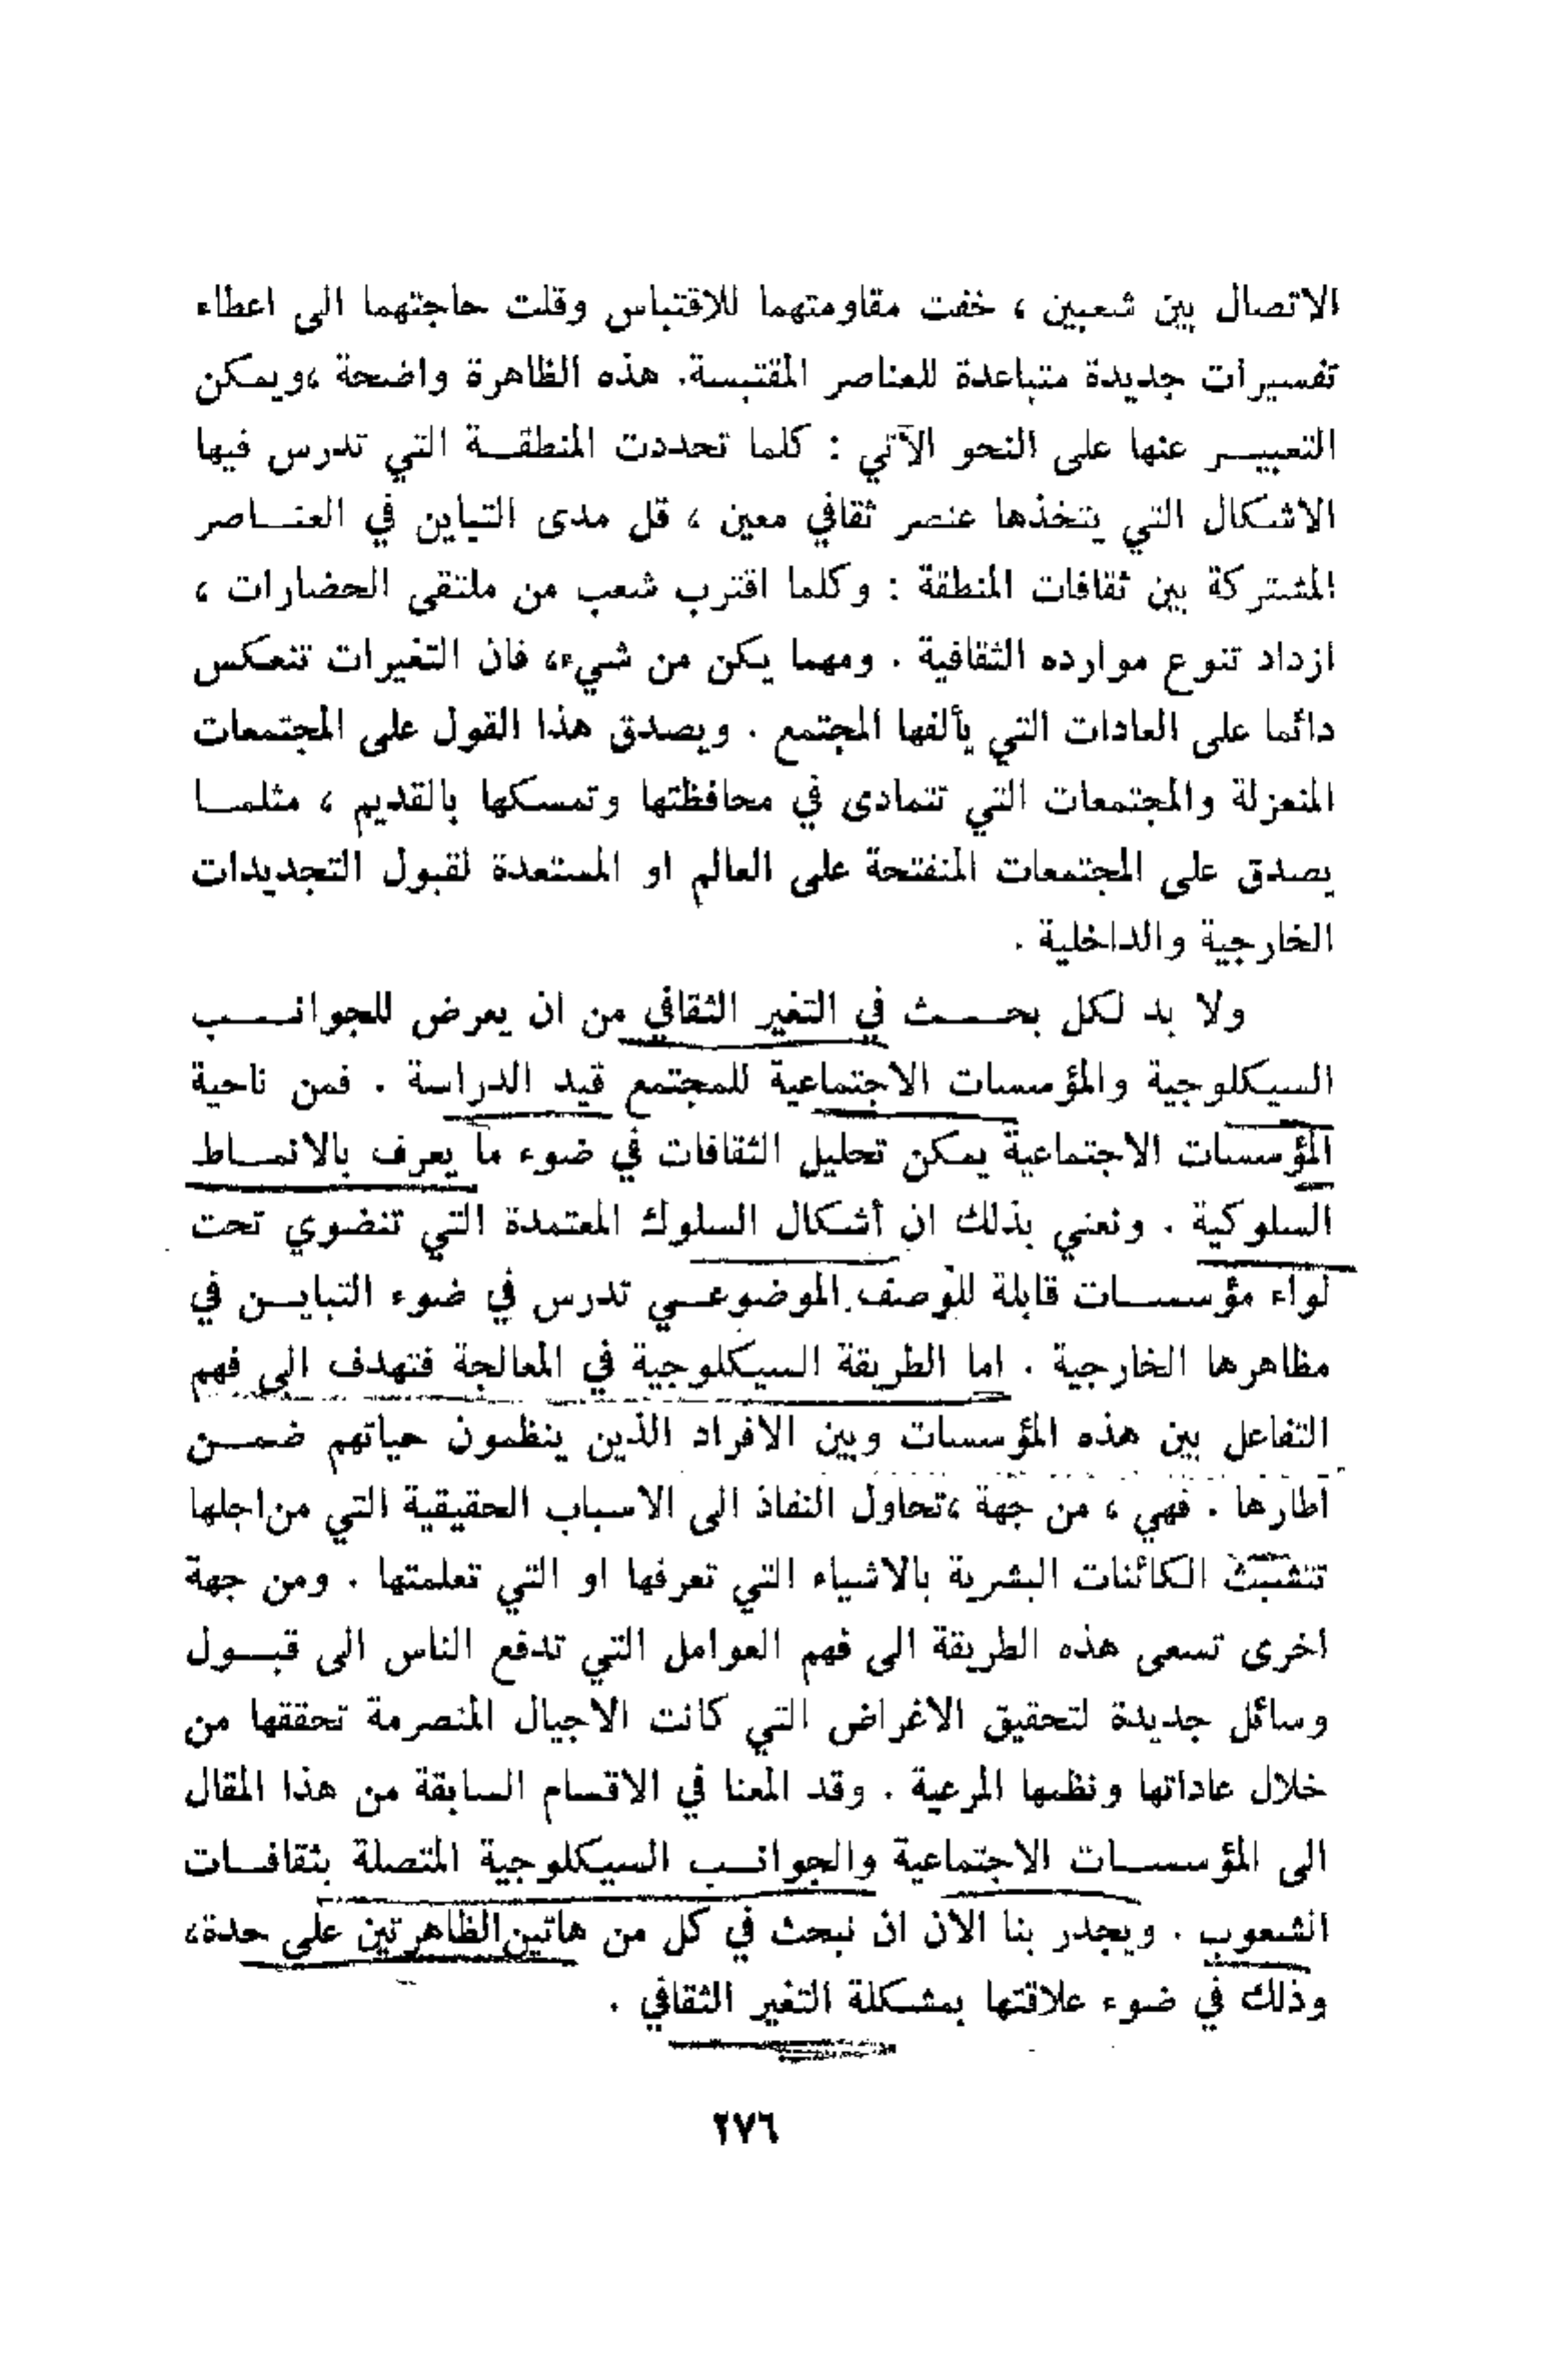 الاتصال بين شعبين ، خفت مقاومتهما للاقتباس وقلت حاجتهما الى اعطاء
تفسيرات جديدة متباعدة للعناصر المقتبسة. هذه الظاهرة واضحة ،ويمكن
التعبيــر عنها على النحو الآتي : كلما تحددت المنطقــة التي تدرس فيها
الاشكال التي يتخذها عنصر ثقافي معين ، قل مدى التباين في العنــاصر
المشتركة بين ثقافات المنطقة : وكلما اقترب شعب من ملتقى الحضارات ،
ازداد تنوع موارده الثقافية . ومهما يكن من شيء، فان التغيرات تنعكس
دائما على العادات التي يألفها المجتمع . ويصدق هذا القول على المجتمعات
المنعزلة والمجتمعات التي تتمادى في محافظتها وتمسكها بالقديم ، مثلمــا
يصدق على المجتمعات المنفتحة على العالم او المستعدة لقبول التجديدات
الخارجية والداخلية .
ولا بد لكل بحــث في التغير الثقافي من ان يعرض للجوانــب
السيكلوجية والمؤسسات الاجتماعية للمجتمع قيد الدراسة . فمن ناحية
المؤسسات الاجتماعية يمكن تحليل الثقافات في ضوء ما يعرف بالانمــاط
السلوكية . ونعني بذلك ان أشكال السلوك المعتمدة التي تنضوي تحت
لواء مؤسســات قابلة للوصف الموضوعــي تدرس في ضوء التبايــن في
مظاهرها الخارجية . اما الطريقة السيكلوجية في المعالجة فتهدف الى فهم
التفاعل بين هذه المؤسسات وبين الافراد الذين ينظمون حياتهم ضمــن
اطارها . فهي ، من جهة ،تحاول النفاذ الى الاسباب الحقيقية التي من اجلها
تتشبث الكائنات البشرية بالاشياء التي تعرفها او التي تعلمتها . ومن جهة
اخرى تسعى هذه الطريقة الى فهم العوامل التي تدفع الناس الى قبــول
وسائل جديدة لتحقيق الاغراض التي كانت الاجيال المنصرمة تحققها من
خلال عاداتها ونظمها المرعية . وقد المعنا في الاقسام السابقة من هذا المقال
الى المؤسســات الاجتماعية والجوانــب السيكلوجية المتصلة بثقافــات
الشعوب . ويجدر بنا الان ان نبحث في كل من هاتين الظاهرتين على حدة،
وذلك في ضوء علاقتها بمشكلة التغير الثقافي .
٢٧٦